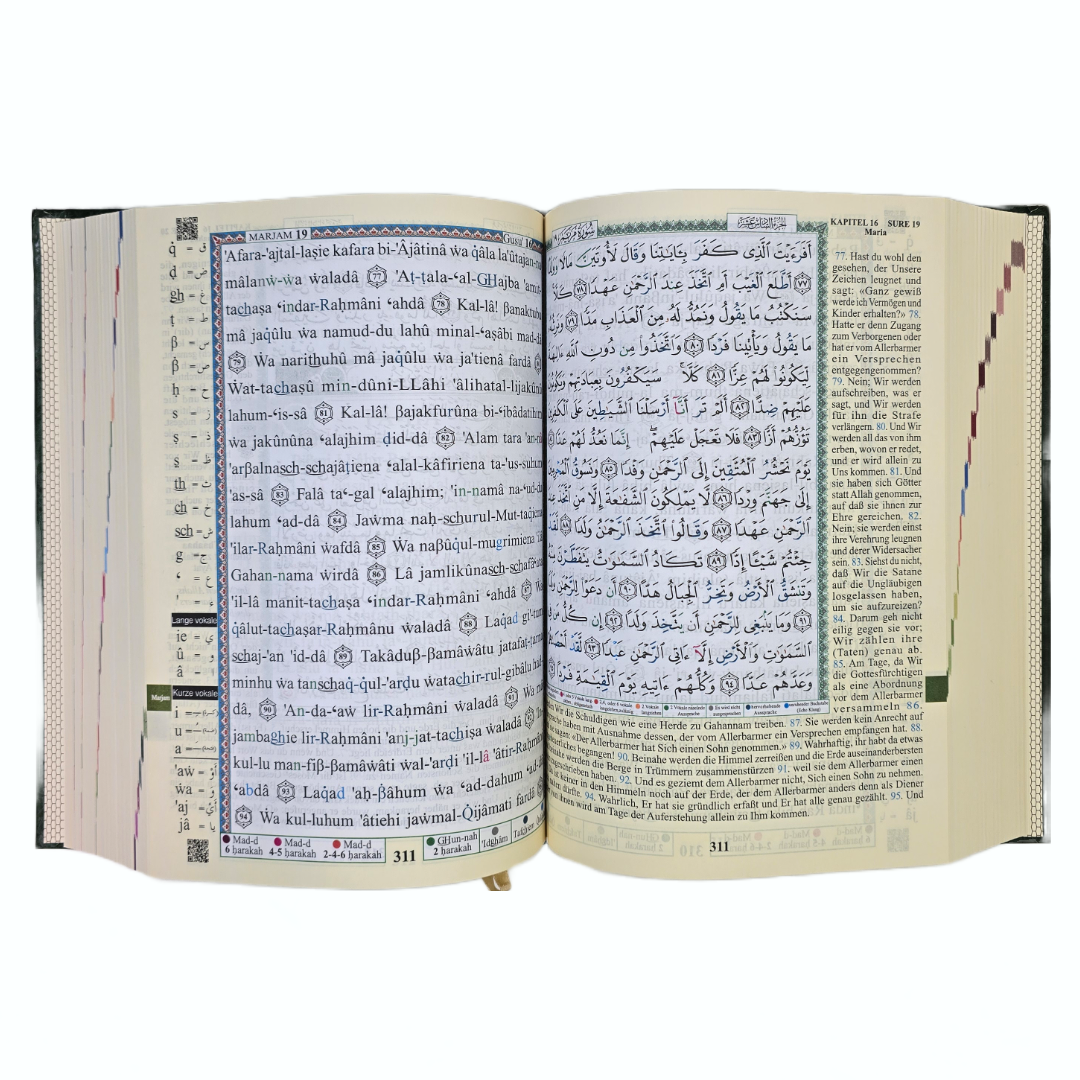 MARJAM 19
Gusu' 16
'Afara-'ajtal-laşie kafara bi-'Âjâtinâ ẇa q̇âla la'ûtajan-na
mâlanẇ-ẇa ẇaladâ 77 'Aţ-ţala-ʻal-GHajba 'amit-
tachaşa ʻindar-Raḥmâni ʻahdâ 78 Kal-lâ! βanaktubu
mâ jaq̇ûlu ẇa namud-du lahû minal-ʻaşâbi mad-dâ
79 Ẇa narithuhû mâ jaq̇ûlu ẇa ja'tienâ fardâ
Ẇat-tachaşû min-dûni-LLâhi 'âlihatal-lijakûnû
lahum-ʻis-sâ 81 Kal-lâ! βajakfurûna bi-ʻibâdatihim
ẇa jakûnûna ʻalajhim ḍid-dâ 82 'Alam tara 'an-nâ
'arβalnasch-schajâţiena ʻalal-kâfiriena ta'us-suhum
'as-sâ 83 Falâ taʻ-gal ʻalajhim; 'in-namâ na-ʻud-du
lahum ʻad-dâ 84 Jaẇma naḥ-schurul-Mut-taq̇iena
'ilar-Raḥmâni ẇafdâ 85 Ẇa naβûq̇ul-mugrimiena 'ilâ
Gahan-nama ẇirdâ 86 Lâ jamlikûnasch-schafâʻata
'il-lâ manit-tachaşa ʻindar-Raḥmâni ʻahdâ 87 Ẇa
q̇âlut-tachaşar-Raḥmânu ẇaladâ 88 Laq̇ad gi'-tum
schaj-'an 'id-dâ 89 Takâduβ-βamâẇâtu jatafaţ-ţarna
minhu ẇa tanschaq̇-q̇ul-'arḍu ẇatachir-rul-gibâlu had-
dâ, 90 'An-da-ʻaẇ lir-Raḥmâni ẇaladâ 91 Ẇa mâ
jambaghie lir-Raḥmâni 'anj-jat-tachişa ẇaladâ 92 'In
kul-lu man-fiβ-βamâẇâti ẇal-'arḍi 'il-lâ 'âtir-Raḥmâni
ʻabdâ 93 Laq̇ad 'aḥ-βâhum ẇa ʻad-dahum ʻad-dâ
94 Ẇa kul-luhum 'âtiehi jaẇmal-Q̇ijâmati fardâ
q̇ = ق
ḍ = ض
gh = غ
ţ = ط
β = ص
β = س
ḥ = ح
s = ز
ş = ذ
s = ظ
th = ث
ch = خ
sch = ش
g = ج
ʻ = ع
' = ء
Lange vokale
ie = ي
û = و
â = ا
Marjam
Kurze vokale
i =
u =
a =
'aẇ = أَوْ
ẇa = وَ
'aj = أَيْ
jâ = يَا
Mad-d
6 ḥarakah
Mad-d
4-5 ḥarakah
Mad-d
2-4-6 ḥarakah
GHun-nah
2 ḥarakah
'Idghâm
311
الجزء السادس عشر
سورة مريم
أَفَرَءَيْتَ ٱلَّذِى كَفَرَ بِـَٔايَـٰتِنَا وَقَالَ لَأُوتَيَنَّ مَالًا وَوَلَدًا
٧٧ أَطَّلَعَ ٱلْغَيْبَ أَمِ ٱتَّخَذَ عِندَ ٱلرَّحْمَـٰنِ عَهْدًا ٧٨ كَلَّا
سَنَكْتُبُ مَا يَقُولُ وَنَمُدُّ لَهُۥ مِنَ ٱلْعَذَابِ مَدًّا ٧٩ وَنَرِثُهُۥ
مَا يَقُولُ وَيَأْتِينَا فَرْدًا ٨٠ وَٱتَّخَذُوا۟ مِن دُونِ ٱللَّهِ ءَالِهَةً
لِّيَكُونُوا۟ لَهُمْ عِزًّا ٨١ كَلَّا سَيَكْفُرُونَ بِعِبَادَتِهِمْ وَيَكُونُونَ
عَلَيْهِمْ ضِدًّا ٨٢ أَلَمْ تَرَ أَنَّآ أَرْسَلْنَا ٱلشَّيَـٰطِينَ عَلَى ٱلْكَـٰفِرِينَ
تَؤُزُّهُمْ أَزًّا ٨٣ فَلَا تَعْجَلْ عَلَيْهِمْ إِنَّمَا نَعُدُّ لَهُمْ عَدًّا
يَوْمَ نَحْشُرُ ٱلْمُتَّقِينَ إِلَى ٱلرَّحْمَـٰنِ وَفْدًا ٨٥ وَنَسُوقُ ٱلْمُجْرِمِينَ
إِلَىٰ جَهَنَّمَ وِرْدًا ٨٦ لَّا يَمْلِكُونَ ٱلشَّفَـٰعَةَ إِلَّا مَنِ ٱتَّخَذَ عِندَ
ٱلرَّحْمَـٰنِ عَهْدًا ٨٧ وَقَالُوا۟ ٱتَّخَذَ ٱلرَّحْمَـٰنُ وَلَدًا ٨٨ لَّقَدْ
جِئْتُمْ شَيْـًٔا إِدًّا ٨٩ تَكَادُ ٱلسَّمَـٰوَٰتُ يَتَفَطَّرْنَ مِنْهُ
وَتَنشَقُّ ٱلْأَرْضُ وَتَخِرُّ ٱلْجِبَالُ هَدًّا ٩٠ أَن دَعَوْا۟ لِلرَّحْمَـٰنِ وَلَدًا
٩١ وَمَا يَنۢبَغِى لِلرَّحْمَـٰنِ أَن يَتَّخِذَ وَلَدًا ٩٢ إِن كُلُّ مَن فِى
ٱلسَّمَـٰوَٰتِ وَٱلْأَرْضِ إِلَّآ ءَاتِى ٱلرَّحْمَـٰنِ عَبْدًا ٩٣ لَّقَدْ أَحْصَىٰهُمْ
وَعَدَّهُمْ عَدًّا ٩٤ وَكُلُّهُمْ ءَاتِيهِ يَوْمَ ٱلْقِيَـٰمَةِ فَرْدًا
KAPITEL 16 SURE 19
Maria
77. Hast du wohl den
gesehen, der Unsere
Zeichen leugnet und
sagt: «Ganz gewiß
werde ich Vermögen und
Kinder erhalten?» 78.
Hatte er denn Zugang
zum Verborgenen oder
hat er vom Allerbarmer
ein Versprechen
entgegengenommen?
79. Nein; Wir werden
aufschreiben, was er
sagt, und Wir werden
für ihn die Strafe
verlängern. 80. Und Wir
werden all das von ihm
erben, wovon er redet,
und er wird allein zu
Uns kommen. 81. Und
sie haben sich Götter
statt Allah genommen,
auf daß sie ihnen zur
Ehre gereichen. 82.
Nein; sie werden einst
ihre Verehrung leugnen
und derer Widersacher
sein. 83. Siehst du nicht,
daß Wir die Satane
auf die Ungläubigen
losgelassen haben,
um sie aufzureizen?
84. Darum geh nicht
eilig gegen sie vor;
Wir zählen ihre
(Taten) genau ab.
85. Am Tage, da Wir
die Gottesfürchtigen
als eine Abordnung
vor dem Allerbarmer
versammeln 86.
Wir die Schuldigen wie eine Herde zu Gahannam treiben. 87. Sie werden kein Anrecht auf
haben mit Ausnahme dessen, der vom Allerbarmer ein Versprechen empfangen hat. 88.
sagen: «Der Allerbarmer hat Sich einen Sohn genommen.» 89. Wahrhaftig, ihr habt da etwas
begangen! 90. Beinahe werden die Himmel zerreißen und die Erde auseinanderbersten
werden die Berge in Trümmern zusammenstürzen 91. weil sie dem Allerbarmer einen
haben. 92. Und es geziemt dem Allerbarmer nicht, Sich einen Sohn zu nehmen.
ist keiner in den Himmeln noch auf der Erde, der dem Allerbarmer anders denn als Diener
dürfte. 94. Wahrlich, Er hat sie gründlich erfaßt und Er hat alle genau gezählt. 95. Und
wird am Tage der Auferstehung allein zu Ihm kommen.
311